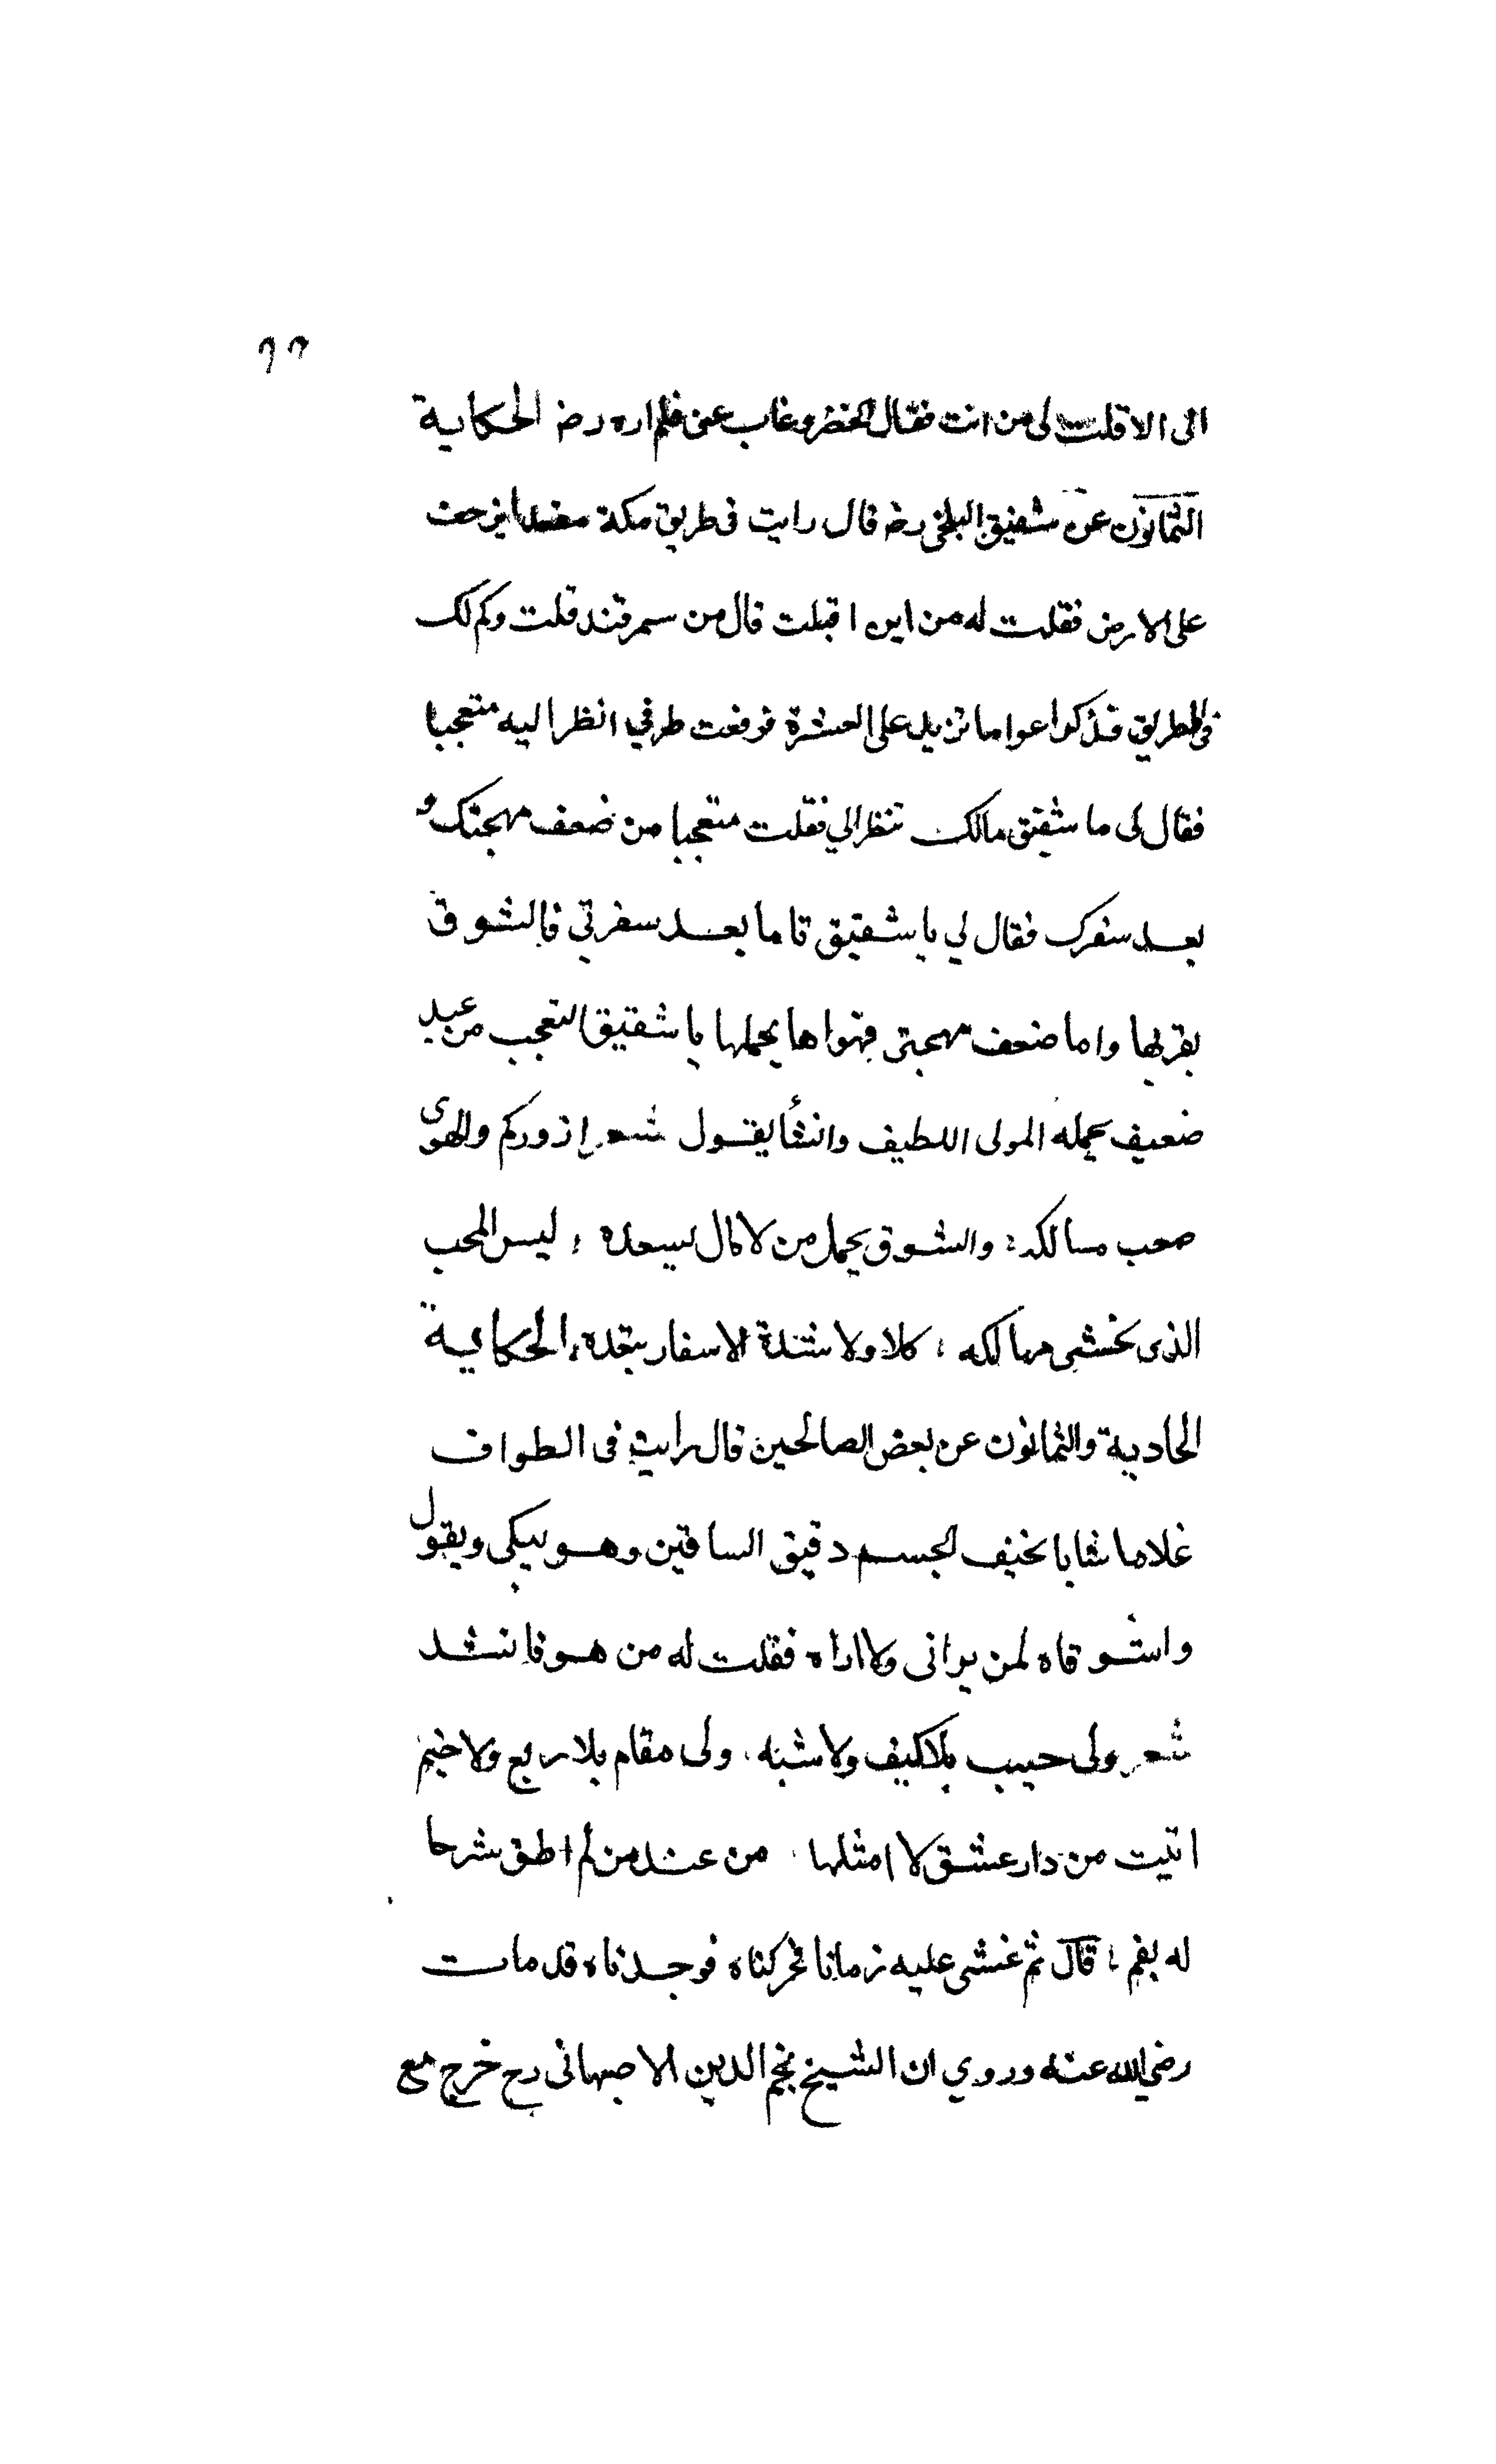 ٦٦
الى الا قلت لى من انت فقال الخضر وغاب عنى فلم اره رضہ الحكاية
الثمانون عن شقيق البلخى رضہ قال رايت فى طريق مكة مقعدا يزحف
على الارض فقلت له من اين اقبلت قال من سمرقند قلت وكم لك
فى الطريق فذكر اعواما تزيد على العشرة فرفعت طرفي انظر اليه متعجبا
فقال لى ما شقيق مالك تنظر الي فقلت متعجبا من ضعف مهجتك و
بعد سفرك فقال لي يا شقيق اما بعد سفرتي فالشوق
يقربها واما ضعف مهجتى فهواها يحملها يا شقيق اتعجب من عبد
ضعيف يحمله المولى اللطيف وانشأ يقول شعر ازوركم والهوى
صعب مسالكه ؛ والشوق يحمل من لا مال يسعده ؛ ليس المحب
الذى يخشى مهالكه ؛ كلا ولا شدة الاسفار تبعده ؛ الحكاية
الحادية والثمانون عن بعض الصالحين قال رايت فى الطواف
غلاما شابا نحيف الجسم دقيق الساقين وهو يبكى ويقول
واشوقاه لمن يرانى ولا اراه فقلت له من هو فانشد
شعر ولى حبيب بلا كيف ولا شبه ، ولى مقام بلا ربع ولا خيم
اتيت من دار عشق لا امثلها ، من عند من لم اطق شرحا
له بفم ؛ قال ثم غشى عليه زمانا فحركناه فوجدناه قد مات
رضي الله عنه وروي ان الشيخ نجم الدين الاصبهانى رح خرج مع